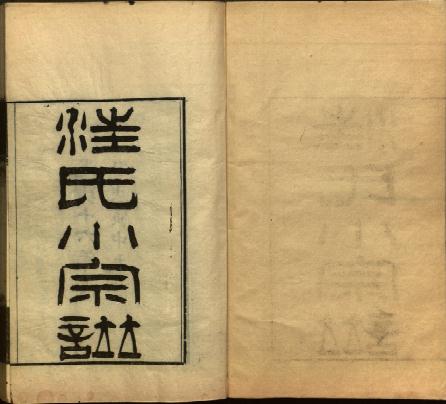 汪氏小宗譜